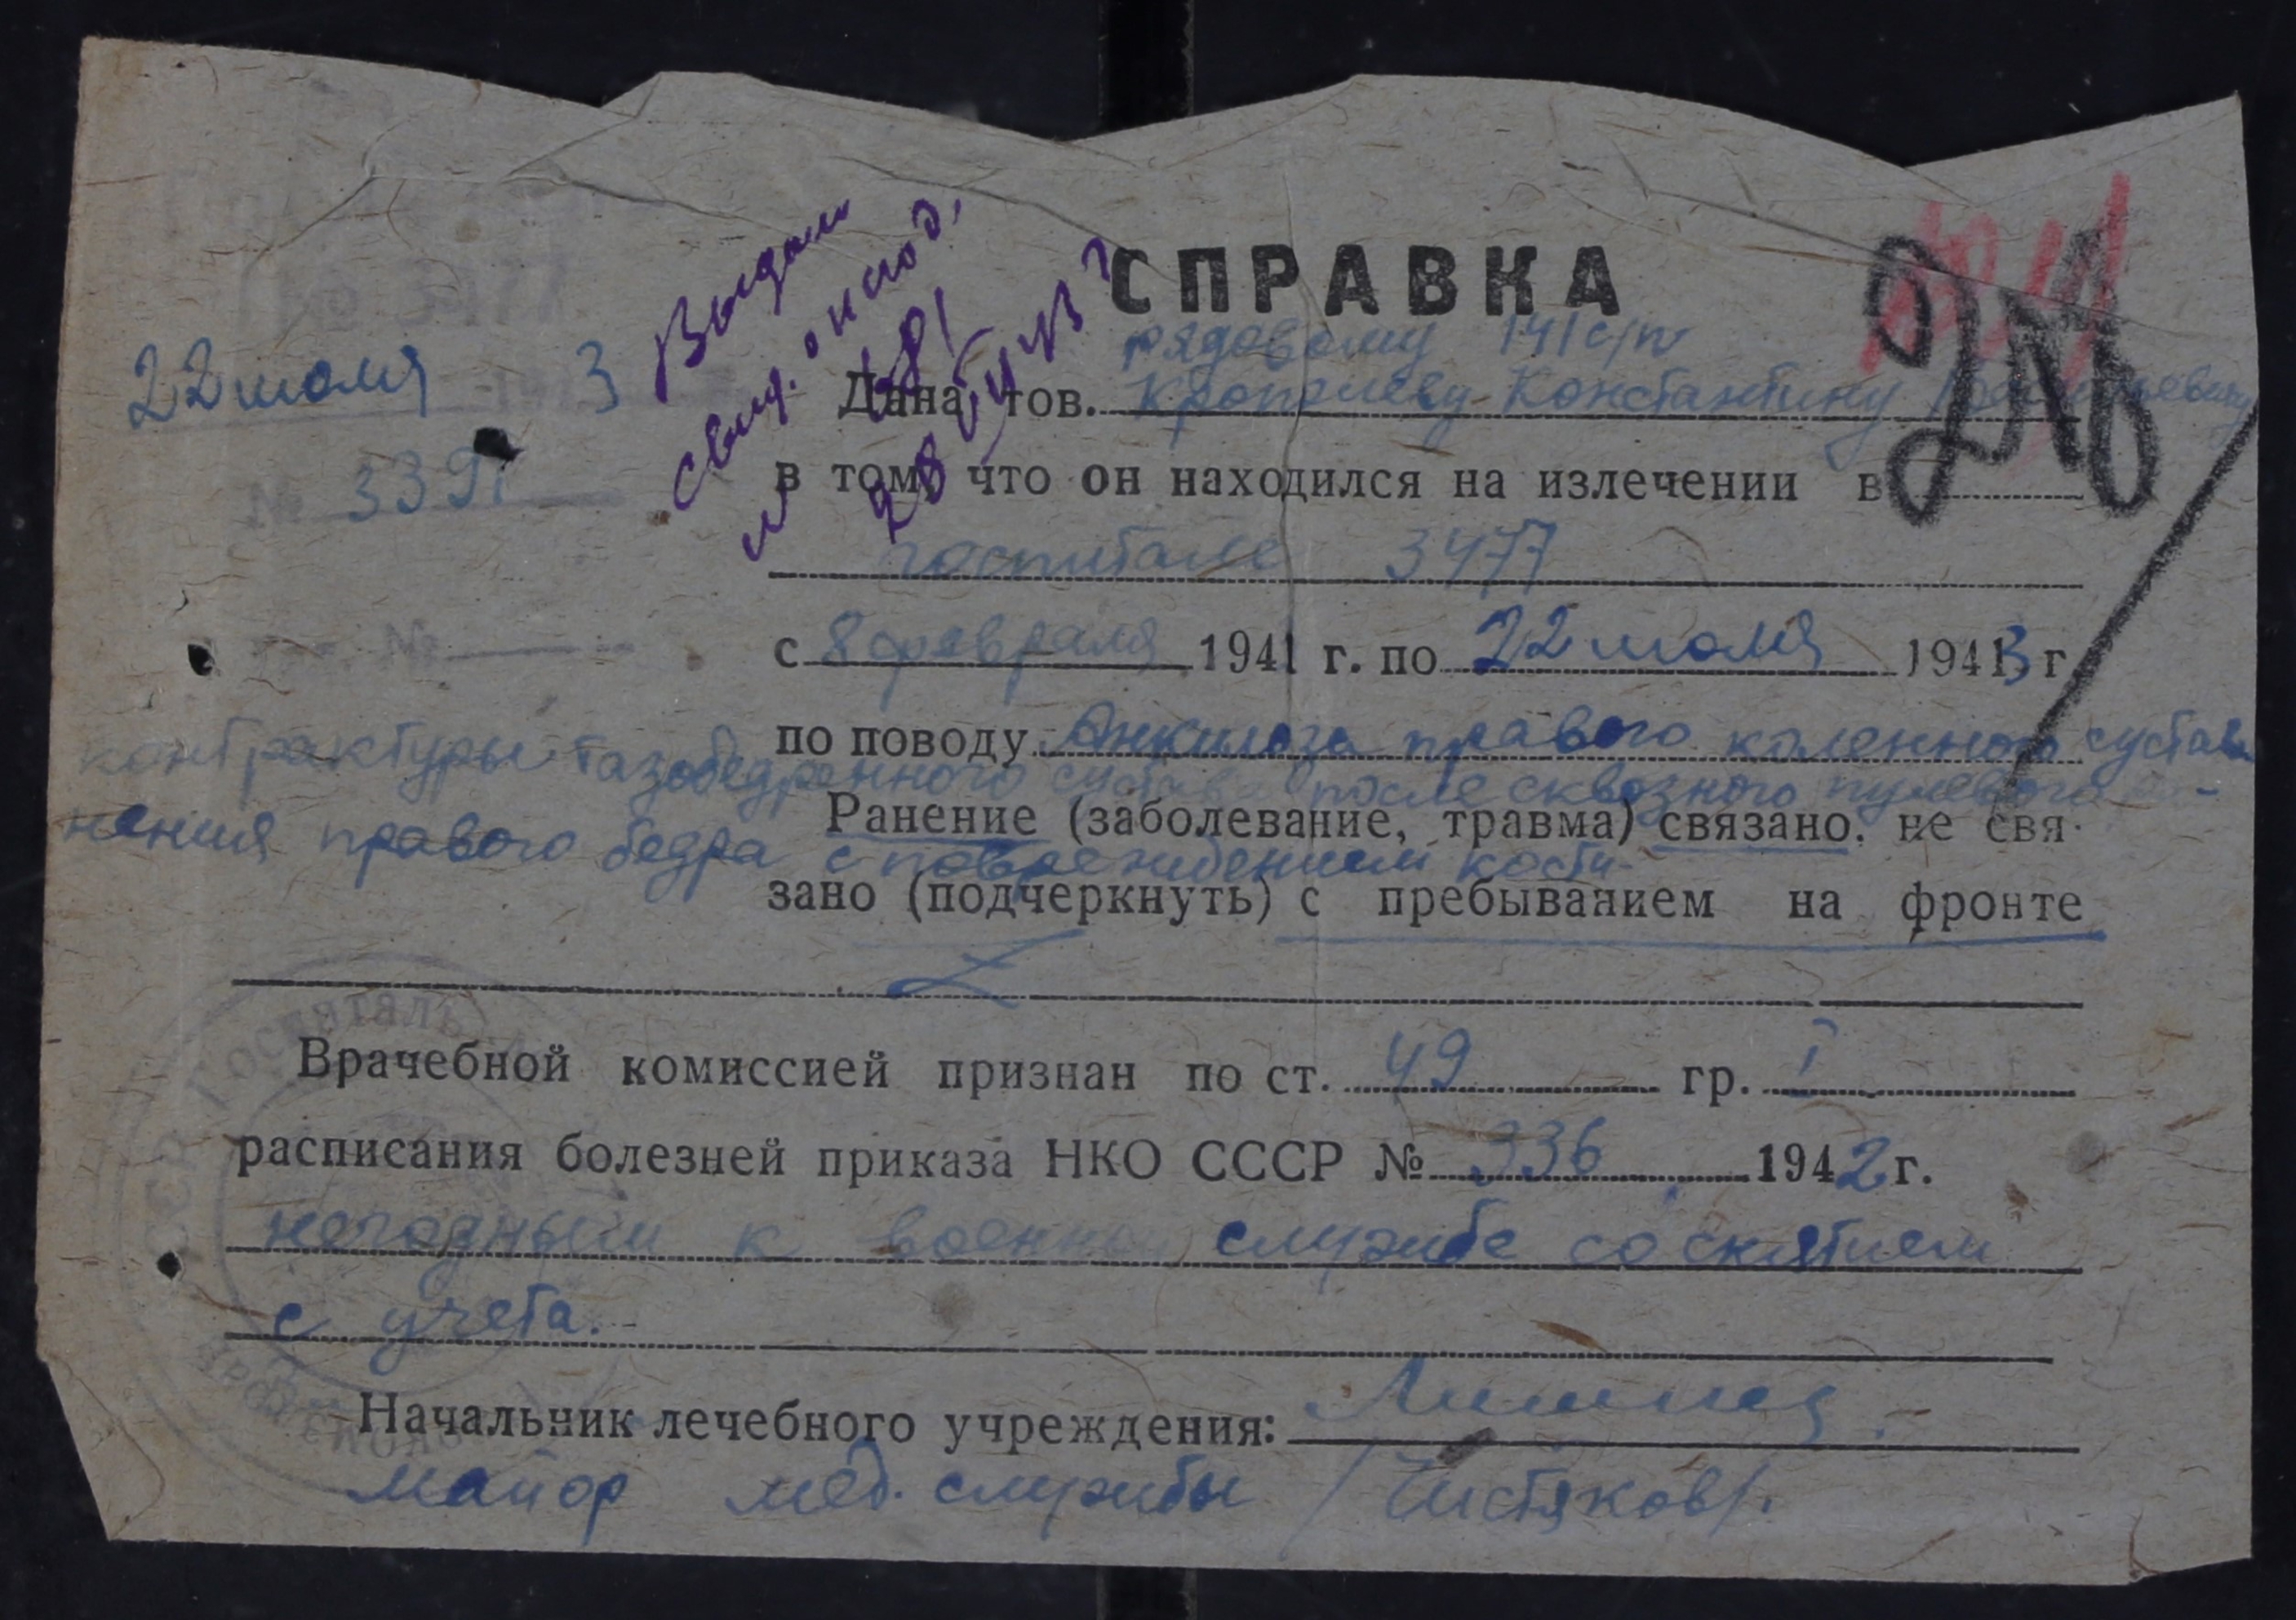 СПРАВКА
22 июля 3
№ 339
№
Выдан
свид. о
рядовому 141 с/п
Дана тов. Кропачеву Константину
в том, что он находился на излечении в
госпитале 3477
с 8 февраля 1941 г. по 22 июля 1943 г
по поводу Анкилоза правого коленного сустава
контрактуры тазобедренного сустава после сквозного пулевого ра-
нения правого бедра с повреждением кости
Ранение (заболевание, травма) связано, не свя-
зано (подчеркнуть) с пребыванием на фронте
Врачебной комиссией признан по ст. 49 гр. I
расписания болезней приказа НКО СССР № 336 1942 г.
негодным к военной службе со снятием
с учета.
Начальник лечебного учреждения:
майор мед. службы /Чистяков/.
Госпиталь